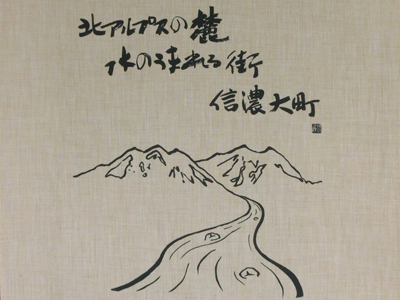 北アルプスの麓
水の流れる街
信濃大町